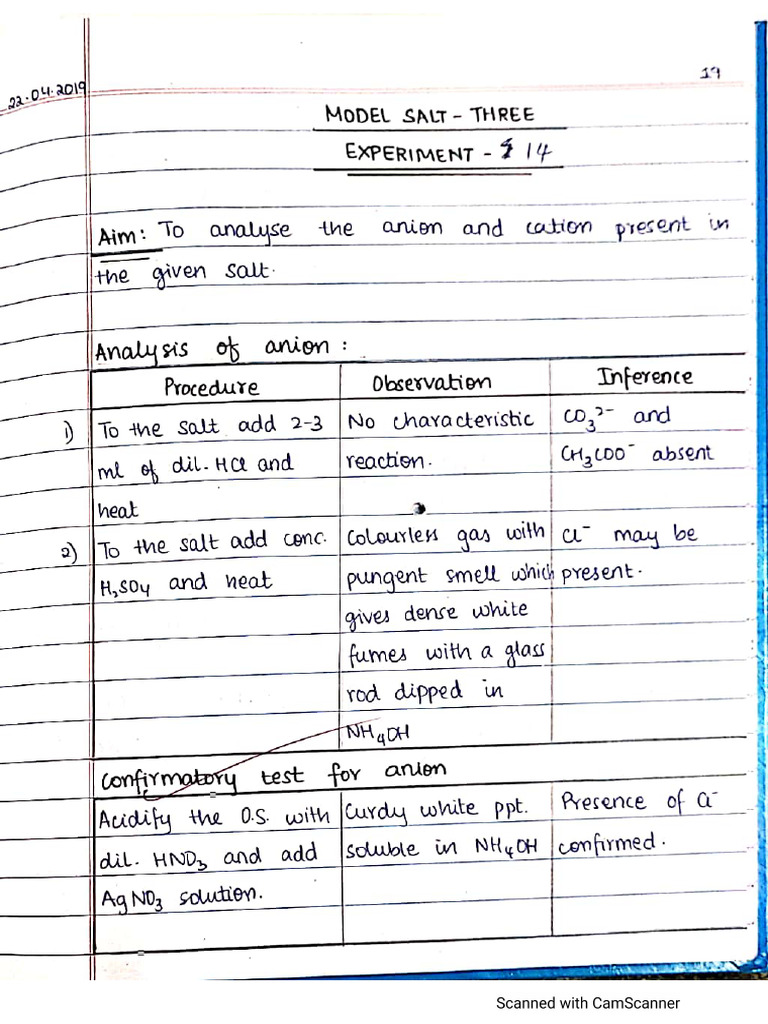 19
22.04.2019
MODEL SALT - THREE
EXPERIMENT - 14
Aim: To analyse the anion and cation present in
the given salt.
Analysis of anion :
Procedure
Observation
Inference
1) To the salt add 2-3
ml of dil. HCl and
heat
No characteristic
reaction.
CO₃²⁻ and
CH₃COO⁻ absent
2) To the salt add conc.
H₂SO₄ and heat
Colourless gas with
pungent smell which
gives dense white
fumes with a glass
rod dipped in
NH₄OH
Cl⁻ may be
present.
Confirmatory test for anion
Acidify the O.S. with
dil. HNO₃ and add
AgNO₃ solution.
Curdy white ppt.
soluble in NH₄OH
Presence of Cl⁻
confirmed.
Scanned with CamScanner